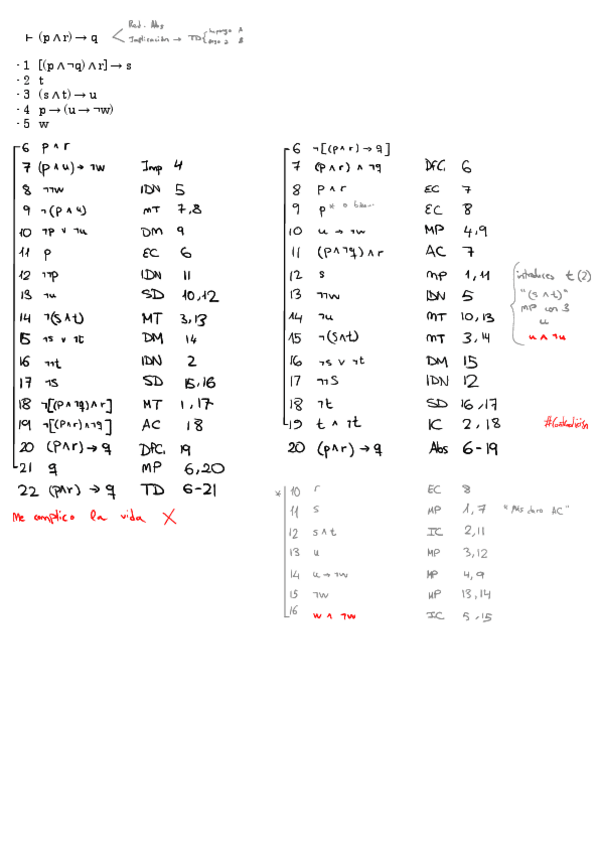 Red. Abs
⊢ (p∧r)→q < Implicación → TD { Supongo A
llego a B
·1 [(p∧¬q)∧r]→s
·2 t
·3 (s∧t)→u
·4 p→(u→¬w)
·5 w
6 p∧r
7 (p∧u)→¬w Imp 4
8 ¬¬w IDN 5
9 ¬(p∧u) MT 7,8
10 ¬p ∨ ¬u DM 9
11 p EC 6
12 ¬¬p IDN 11
13 ¬u SD 10,12
14 ¬(s∧t) MT 3,13
15 ¬s ∨ ¬t DM 14
16 ¬¬t IDN 2
17 ¬s SD 15,16
18 ¬[(p∧¬q)∧r] MT 1,17
19 ¬[(p∧r)∧¬q] AC 18
20 (p∧r)→q DfC, 19
21 q MP 6,20
22 (p∧r)→q TD 6-21
Me complico la vida X
6 ¬[(p∧r)→q]
7 (p∧r)∧¬q DfC, 6
8 p∧r EC 7
9 p* EC 8
10 u→¬w MP 4,9
11 (p∧¬q)∧r AC 7
12 s MP 1,11
13 ¬¬w IDN 5
14 ¬u MT 10,13
15 ¬(s∧t) MT 3,14
16 ¬s ∨ ¬t DM 15
17 ¬¬s IDN 12
18 ¬t SD 16,17
19 t ∧ ¬t IC 2,18 #Contradicción
20 (p∧r)→q Abs 6-19
introduces t (2)
"(s∧t)"
MP con 3
u
u ∧ ¬u
* 10 r EC 8
11 s MP 1,7 "Más duro AC"
12 s∧t IC 2,11
13 u MP 3,12
14 u→¬w MP 4,9
15 ¬w MP 13,14
16 w ∧ ¬w IC 5,15